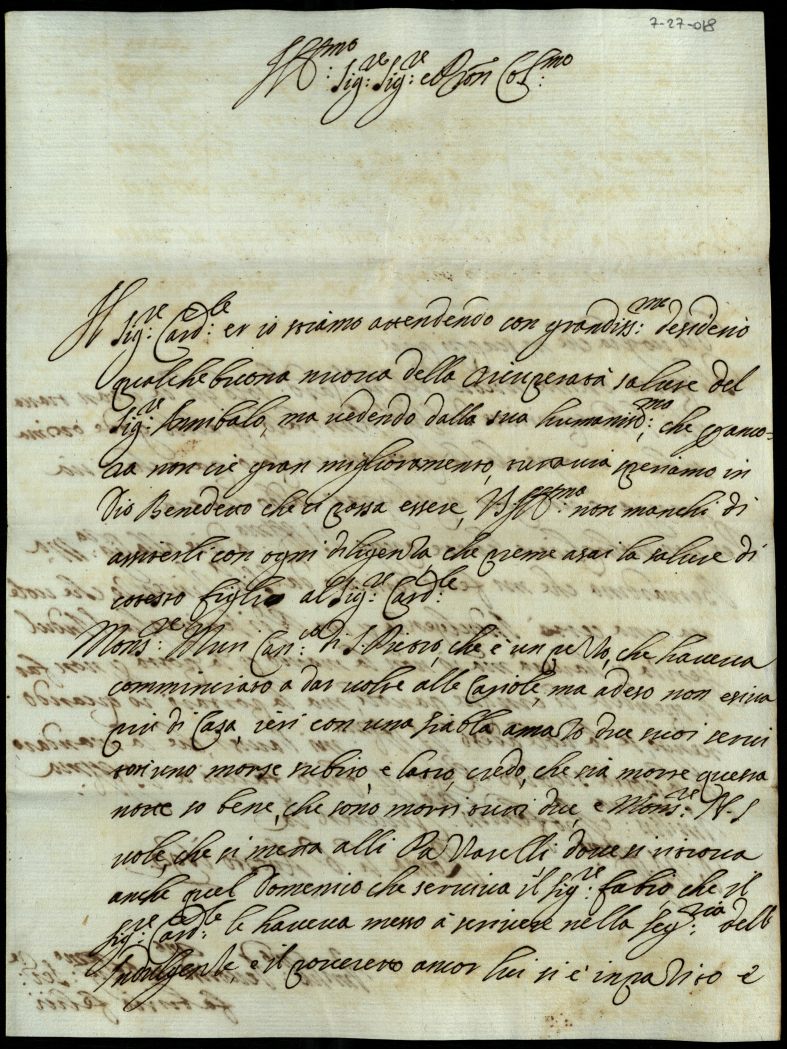 7-27-018
Ill:mo Sig:re Sig:re et Pron Col:mo
Il Sig:re Card:le et io stiamo attendendo con grandiss:mo desiderio
qualche buona nuova della ricuperata salute del
Sig:re Annibalo, ma vedendo dalla sua humaniss:ma, che p anco-
ra non ciè gran miglioramento, tuttavia speriamo in
Dio Benedetto che ci possa essere, VS Ill:ma non manchi di
assisterli con ogni diligenza, che preme asai la salute di
cotesto figlio al Sig:re Card:le
Mons:re Can:co di S. Pietro, che è un pezzo, che haveva
comminciato a dar volte alle Cariole, ma adeso non esciva
più di Casa, ieri con una sciabla amazzò due suoi servi
tori uno morse subito, e laltro, credo, che sia morto questa
notte so bene, che sono morti tutti due, e Mons:re N.S
vole, che si metta alli Pazzarelli dove si ritrova
anche quel Domenico che serviva il Sig:re Fabio, che il
Sig:re Card:le le haveva messo à scrivere nella Seg:ria dell
Indulgenze e il poveretto ancor lui si è inpazzito e